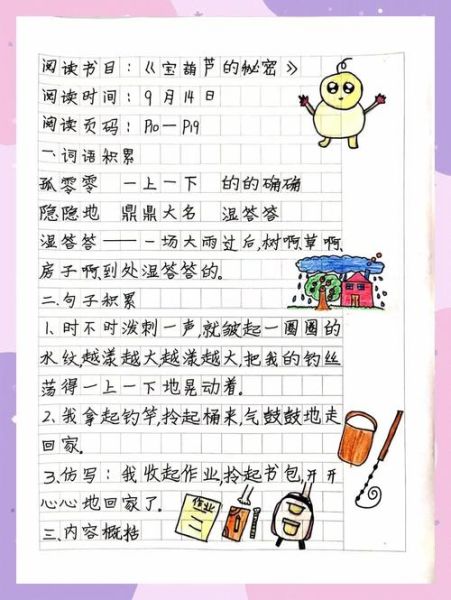 阅读书目：《宝葫芦的秘密》
阅读时间：9月14日
阅读页码：P10—P19
一、词语积累
孤零零 一上一下 的的确确
隐隐地 鼎鼎大名 湿答答
湿答答——一场大雨过后,树啊草啊
房子啊到处湿答答的。
二、句子积累
1、时不时泼刺一声,就皱起一圈圈的
水纹,越漾越大,越漾越大,把我的钓丝
荡得一上一下地晃动着。
2、我拿起钓竿,拎起桶来,气鼓鼓地走
回家。
3、仿写：我收起作业,拎起书包,开开
心心地回家了。
作业
三、内容概括